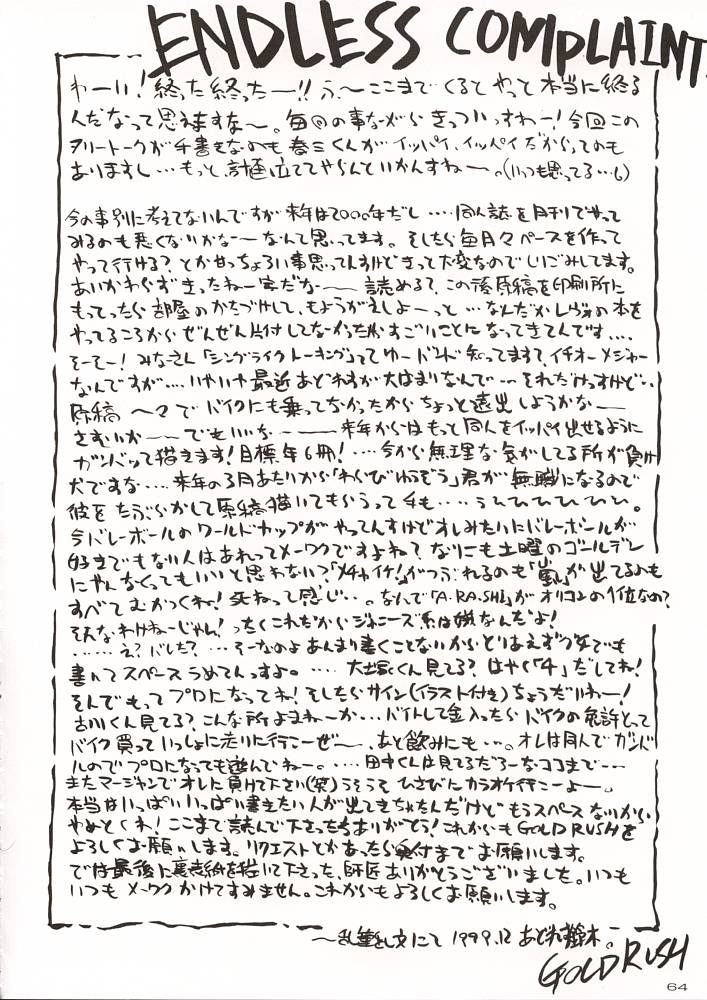 ENDLESS COMPLAINT.
わーい!終った終ったー!!ふぃ〜ここまでくるとやっと本当に終る
んだなって思えますな〜。毎回の事ながらきっついっすわー!今回この
フリートークが手書きなのも春三くんがイッパイ、イッパイだからってのも
ありますし…もっと、計画立ててやらんといかんすねー。(いつも思ってる…)
今の事別に考えてないんですが来年は2000年だし‥‥同人誌を月刊でやって
みるのも悪くないかなーなんて思ってます。そしたら毎月々ペースを作って
やって行ける?とか甘っちょろい事思ってんすけどきっと大変なのでしりごみしてます。
あいかわらず きったねー字だなー 読める?、この後原稿を印刷所に
もってったら部屋のかたづけして、もようがえしよーっと…なんだかレヴォの本を
やってるころからぜんぜん片付してなかったからすごいことになってきてんです‥‥
そーそー!みなさん「シングライクトーキング」ってゆーバンド知ってます?、イチオーメジャー
なんですが‥‥いやいや最近あどれすが大はまりなんで…それだけっすけど‥
原稿 〜々でバイクにも乗ってなかったからちょっと遠出しようかなー
さむいかーーでもいいなーー来年からはもっと同人をイッパイ出せるように
ガンバッて描きます!目標年6冊!‥‥今から無理な気がしてる所が負け
犬ですな‥‥来年の3月あたりから「わらびゆうぞう」君が無職になるので
彼をたぶらかして原稿描いてもらうって手も‥‥うひひひひひひ。
今バレーボールのワールドカップがやってんすけどオレみたいにバレーボールが
好きでもない人はあれってメーワクですよね?なにも土曜のゴールデン
にやんなくってもいいと思わない?「メチャイケ!」がつぶれるのも「嵐」が出てるのも
すべてむかつくね!死ねって感じ…。なんで「A・RA・SHI」がオリコンの1位なの?
そんなわけねーじゃん!ったくこれだからジャニーズ系は嫌なんだよ!
‥‥‥え?バレた?‥‥そーなのよあんまり書くことないからとりあえずグチでも
書いてスペースうめてんっすよ。‥‥大塚くん見てる?はやく「4」だしてね!
そんでもってプロになってね!そしたらサイン(イラスト付き)ちょうだいねー!
古川くん見てる?こんな所よまねーか‥‥バイトして金入ったらバイクの免許とって
バイク買っていっしょに走りに行こーぜ〜、あと飲みにも…。オレは同人でガンバ
ルのでプロになっても遊んでねー。‥‥田中くんは見てるだろーなココまで…
またマージャンでオレに負けて下さい(笑)うそうそひさびにカラオケ行こーよー。
本当はいっぱいいっぱい書きたい人が出てきちゃたんだけどもうスペースないから
やめとくネ!ここまで読んで下さったちありがとう!これからもGOLD RUSHを
よろしくお願いします。リクエストとかあったら奥付までお願いします。
では最後に裏表紙を描いて下さった、師匠ありがとうございました。いつも
いつもメーワクかけてすみません。これからもよろしくお願いします。
〜乱筆乱文にて 1999.12 あどれす鈴木。
GOLD RUSH
64